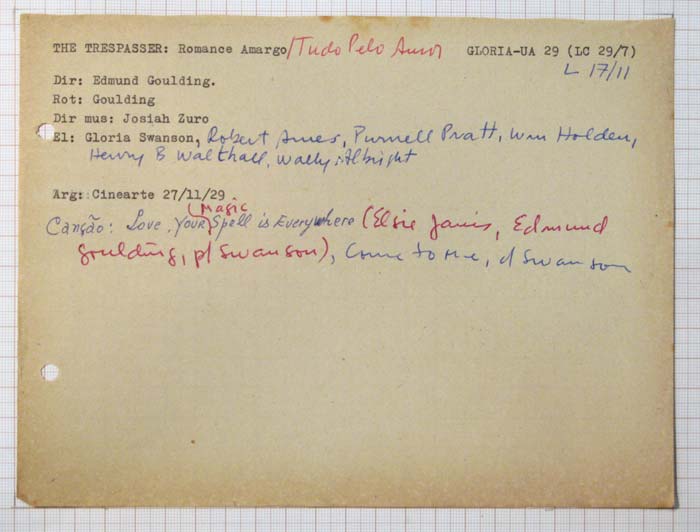 THE TRESPASSER: Romance Amargo/Tudo Pelo Amor GLORIA-UA 29 (LC 29/7)
L 17/11
Dir: Edmund Goulding.
Rot: Goulding
Dir mus: Josiah Zuro
El: Gloria Swanson, Robert Ames, Purnell Pratt, Wm Holden,
Henry B Walthall, Wally Albright
Arg: Cinearte 27/11/29
Magic
Canção: Love, Your Spell is Everywhere (Elsie Janis, Edmund
Goulding, p/ Swanson), Come to Me, d Swanson